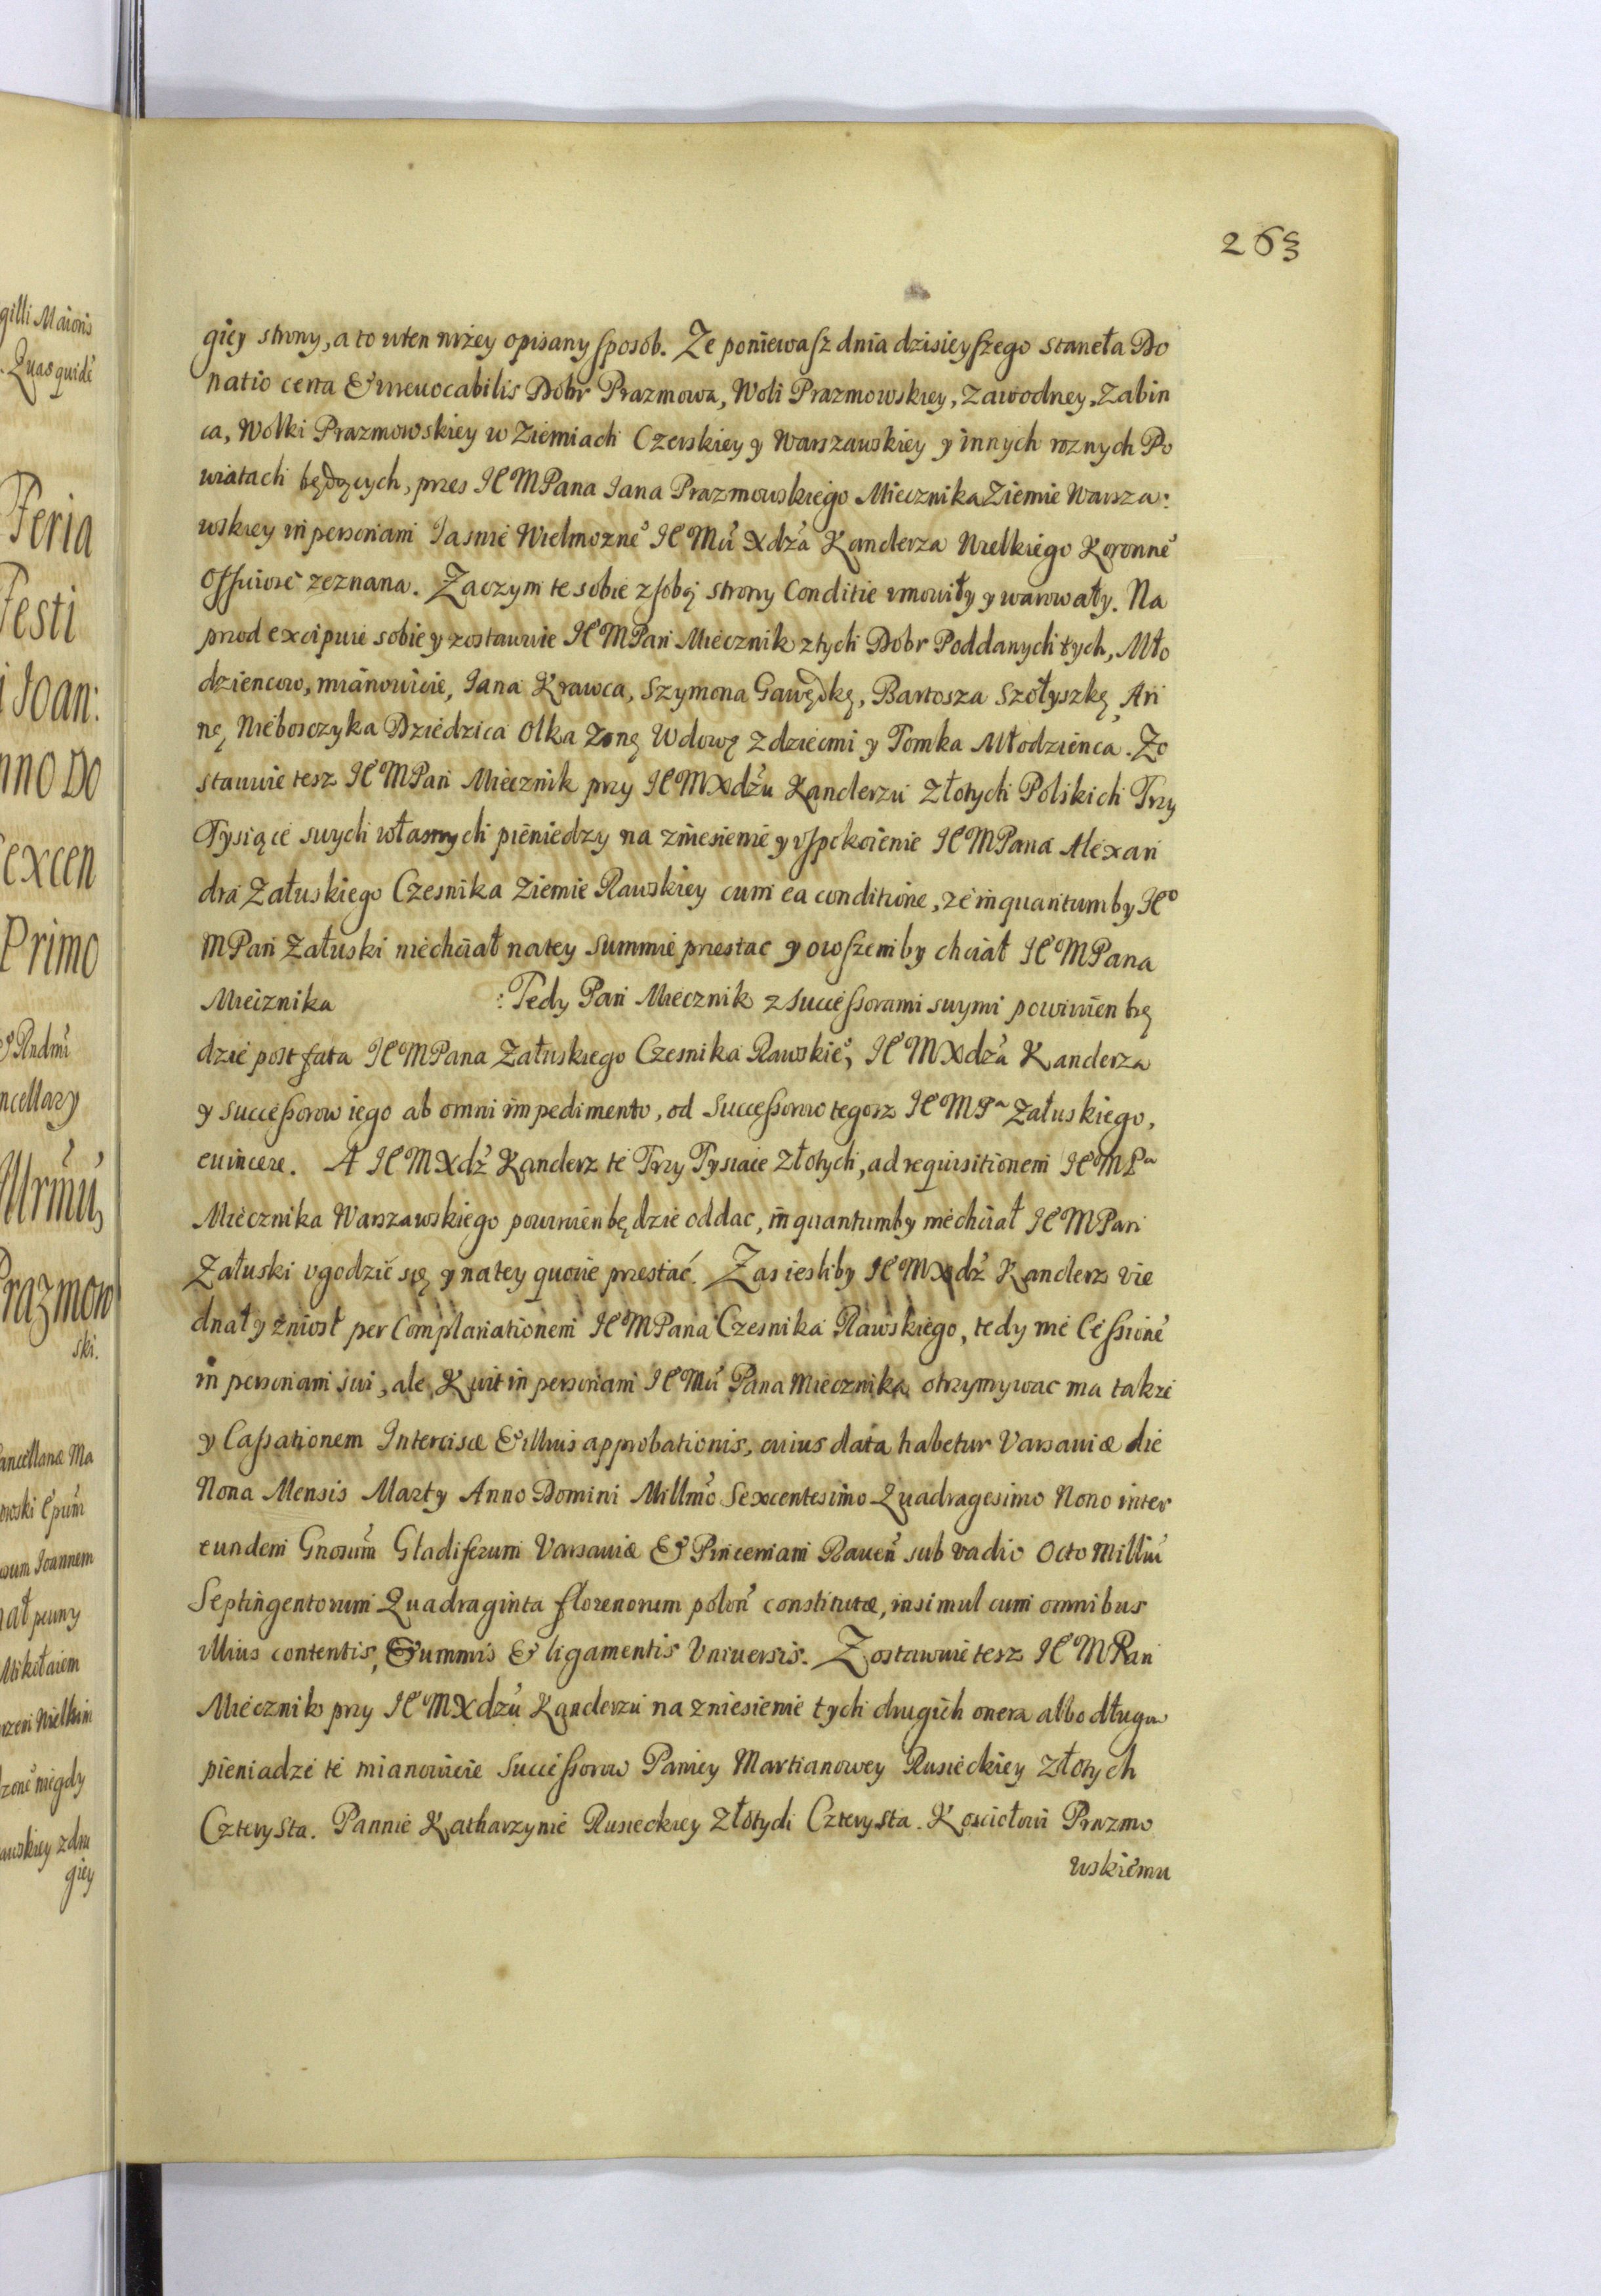 263
giey strony, a to wten niżey opisany sposob. Ze poniewasz dnia dzisieyszego staneła Do
natio certa & irreuocabilis Dobr Prazmowa, Woli Prazmowskiey, Zawodney, Zabin
ca, Wolki Prazmowskiey w Ziemiach Czerskiey y Warszawskiey y innych roznych Po
wiatach będących, przes IEMPana Iana Prazmowskiego Miecznika Ziemie Warsza:
wskiey in personam Iasnie Wielmozne° IEMu Xdza Kanclerza Wielkiego Koronne°
Officiose zeznana. Zaczym te sobie z sobą strony Conditie vmowiły y warowały. Na
przod excipuie sobie y zostawuie IEMPan Miecznik z tych Dobr Poddanych tych, Mło
dziencow, mianowicie, Iana Krawca, Szymona Gawędkę, Bartosza Szołyszkę, An
nę Nieboszczyka Dziedzica Olka Zonę Wdowę z dziecmi y Tomka Młodzienca. Zo
stawuie tesz IEMPan Miecznik przy IEMXdzu Kanclerzu Złotych Polskich Trzy
Tysiące swych własnych pieniedzy na zniesienie y vspokoienie IEMPana Alexan
dra Załuskiego Czesnika Ziemie Rawskiey cum ea conditione, ze inquantumby IE°
MPan Załuski niechciał natey summie przestac y owszemby chciał IEMPana
Miecznika :Tedy Pan Miecznik z Successorami swymi powinien bę
dzie post fata IEMPana Załuskiego Czesnika Rawskie°, IEMXdza Kanclerza
y Successorow iego ab omni impedimento, od Successorow tegosz IEMPa Załuskiego,
euincere. A IEMXdz Kanclerz te Trzy Tysiące Złotych, ad requisitionem IEMPa
Miecznika Warszawskiego powinien będzie oddac, inquantumby niechciał IEMPan
Załuski vgodzić się y natey quocie przestać. Zas iesliby IEMXdz Kanclerz vie
dnał y zniosł per Complanationem IEMPana Czesnika Rawskiego, tedy nie Cessione
in personam sui, ale Kwit in personam IEMu Pana Miecznika otrzymywac ma takze
y Cassationem Intercisæ & illius approbationis, cuius data habetur Varsauiæ die
Nona Mensis Marty Anno Domini Millmo Sexcentesimo Quadragesimo Nono inter
eundem Gnosum Gladiferum Varsauiæ & Pincernam Rauen sub vadio Octo Milliu
Septingentorum Quadraginta florenorum polon constitutæ, insimul cum omnibus
illius contentis, & summis & ligamentis Vniuersis. Zostawuie tesz IEMPan
Miecznik przy IEMXdzu Kanclerzu na zniesienie tych drugich onera albo długu
pieniadze te mianowicie Successorow Paniey Martianowey Rusieckiey Złotych
Czterysta. Pannie Katharzynie Rusieckiey Złotych Czterysta. Kosciołowi Prazmo
wskiemu